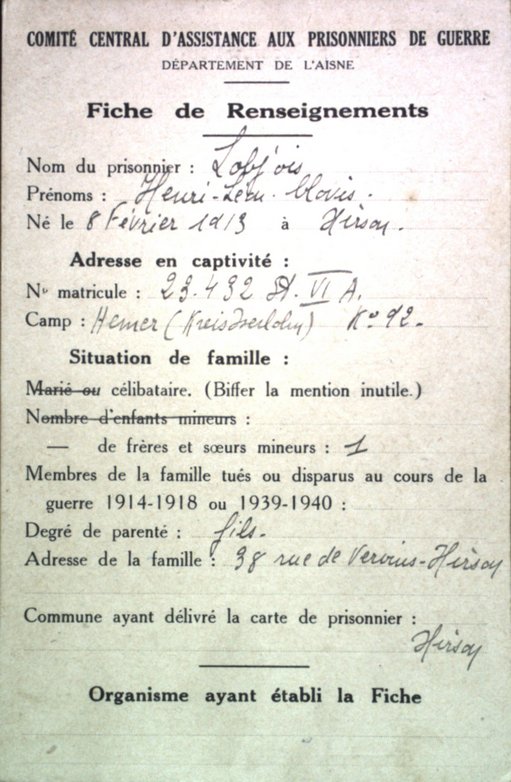 COMITÉ CENTRAL D'ASSISTANCE AUX PRISONNIERS DE GUERRE
DÉPARTEMENT DE L'AISNE
Fiche de Renseignements
Nom du prisonnier : Lobjois
Prénoms : Henri-Léon-Clovis.
Né le 8 Février 1913 à Hirson.
Adresse en captivité :
Nº matricule : 23.432 St. VI A.
Camp : Hemer (Kreis Iserlohn) Ko 92.
Situation de famille :
Marié ou célibataire. (Biffer la mention inutile.)
Nombre d'enfants mineurs :
— de frères et sœurs mineurs : 1
Membres de la famille tués ou disparus au cours de la
guerre 1914-1918 ou 1939-1940 :
Degré de parenté : fils.
Adresse de la famille : 38 rue de Vervins-Hirson
Commune ayant délivré la carte de prisonnier :
Hirson
Organisme ayant établi la Fiche